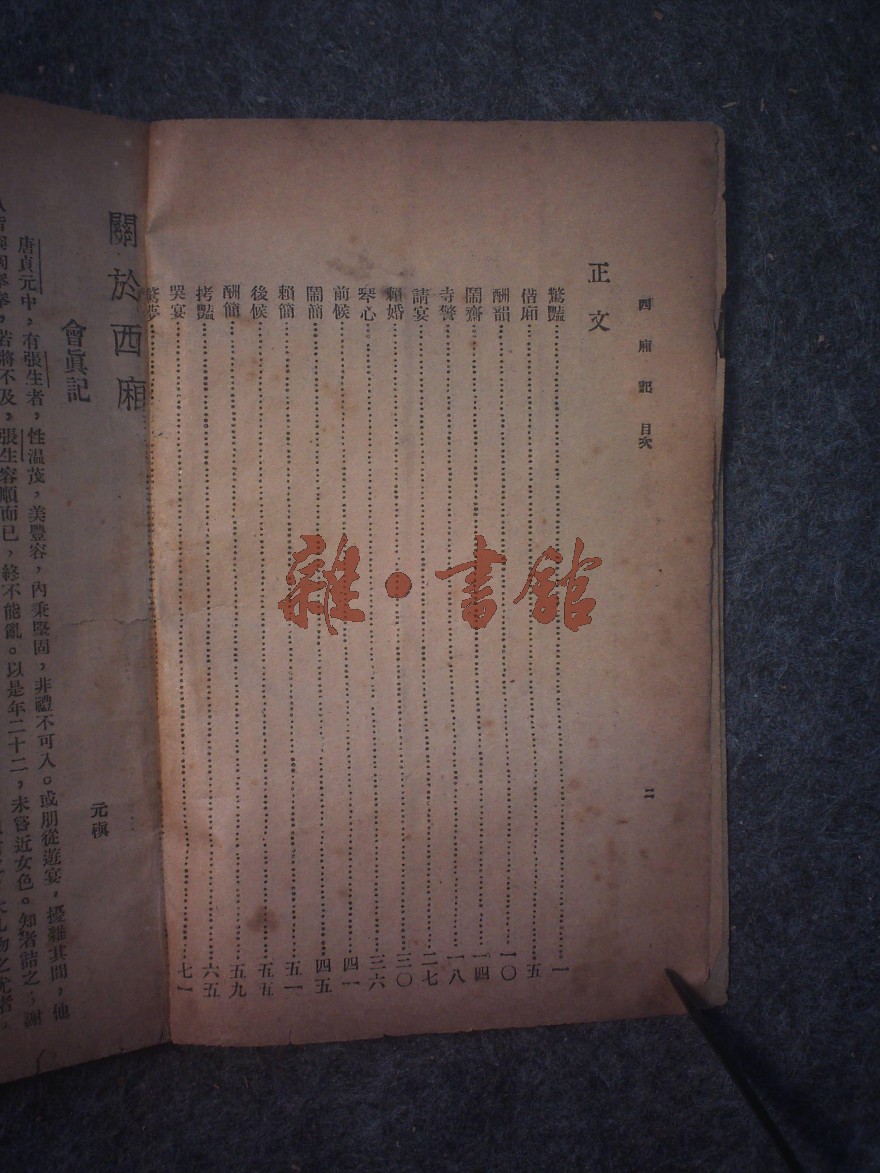 西廂記 目次
二
正文
驚豔……一
借廂……五
酬韻……一〇
鬧齋……一四
寺警……一八
請宴……二七
賴婚……三〇
琴心……三六
前候……四一
鬧簡……四五
賴簡……五一
後候……五五
酬簡……五九
拷豔……六五
哭宴……七一
驚夢……
關於西廂
會眞記
元稹
唐貞元中，有張生者，性温茂，美豐容，內秉堅固，非禮不可入。或朋從遊宴，擾雜其間，他
若將不及，張生容順而已，終不能亂。以是年二十二，未嘗近女色。知者詰之；謝
雜·書館